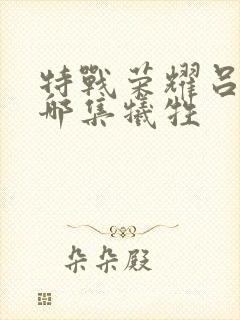 特戰荣耀吕
哪集犧牲
朵朵殿